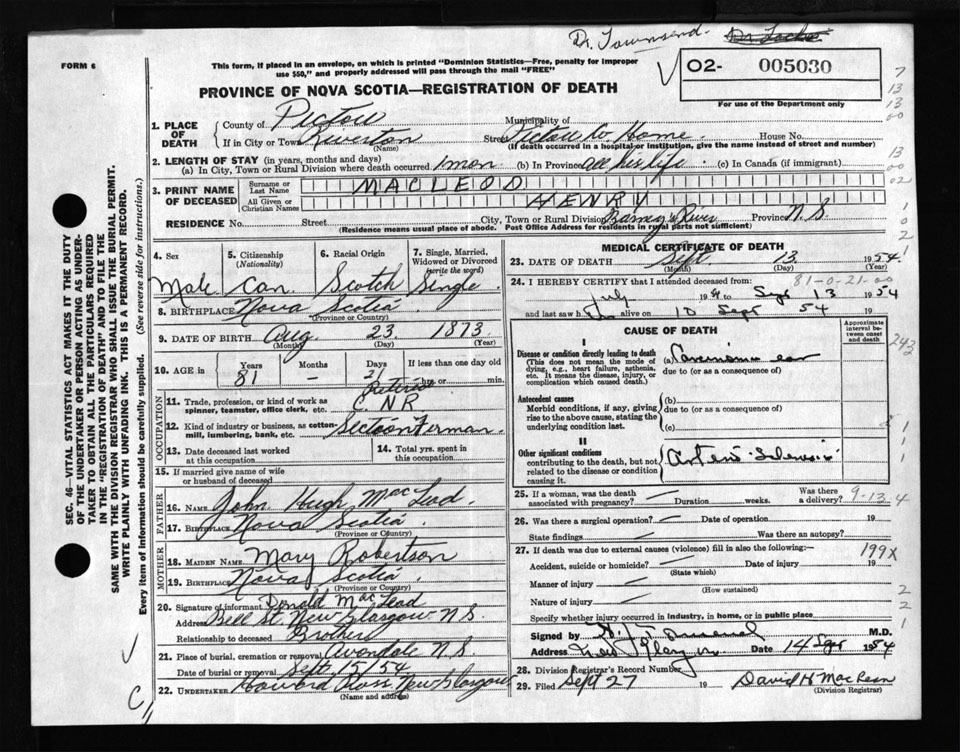 Dr. Townsend. Dr Locke
FORM 6
This form, if placed in an envelope, on which is printed "Dominion Statistics—Free, penalty for improper
use $50," and properly addressed will pass through the mail "FREE"
O2- 005030
For use of the Department only
PROVINCE OF NOVA SCOTIA—REGISTRATION OF DEATH
1. PLACE OF DEATH
County of Pictou Municipality of
If in City or Town Riverton (Name) Street Pictou Co. Home. House No.
(If death occurred in a hospital or institution, give the name instead of street and number)
2. LENGTH OF STAY (in years, months and days)
(a) In City, Town or Rural Division where death occurred 1 mon. (b) In Province all his life. (c) In Canada (if immigrant)
3. PRINT NAME OF DECEASED
Surname or Last Name MACLEOD
All Given or Christian Names HENRY
RESIDENCE No. Street City, Town or Rural Division Barney's River Province N.S.
(Residence means usual place of abode. Post Office Address for residents in rural parts not sufficient)
SEC. 46—VITAL STATISTICS ACT MAKES IT THE DUTY
OF THE UNDERTAKER OR PERSON ACTING AS UNDER-
TAKER TO OBTAIN ALL THE PARTICULARS REQUIRED
IN THE "REGISTRATION OF DEATH" AND TO FILE THE
SAME WITH THE DIVISION REGISTRAR WHO SHALL ISSUE THE BURIAL PERMIT.
WRITE PLAINLY WITH UNFADING INK. THIS IS A PERMANENT RECORD.
Every item of information should be carefully supplied. (See reverse side for instructions.)
4. Sex Male
5. Citizenship (Nationality) Can.
6. Racial Origin Scotch
7. Single, Married, Widowed or Divorced (write the word) Single.
8. BIRTHPLACE Nova Scotia (Province or Country)
9. DATE OF BIRTH Aug. 23. 1873
(Month) (Day) (Year)
10. AGE in Years 81 Months – Days 21 If less than one day hr. or min.
OCCUPATION
11. Trade, profession, or kind of work as spinner, teamster, office clerk, etc. Retired C.N R
12. Kind of industry or business, as cotton-mill, lumbering, bank, etc. Section Forman.
13. Date deceased last worked at this occupation
14. Total yrs. spent in this occupation
15. If married give name of wife or husband of deceased
FATHER
16. NAME John Hugh MacLeod
17. BIRTHPLACE Nova Scotia.
(Province or Country)
MOTHER
18. MAIDEN NAME Mary Robertson
19. BIRTHPLACE Nova Scotia
(Province or Country)
20. Signature of informant Donald MacLeod
Address Bell St. New Glasgow N.S.
Relationship to deceased Brother
21. Place of burial, cremation or removal Avondale N.S.
Date of burial or removal Sept 15/54
22. UNDERTAKER Howard Ross New Glasgow
(Name and address)
MEDICAL CERTIFICATE OF DEATH
23. DATE OF DEATH Sept 13 1954
(Month) (Day) (Year)
81-0-21-00
24. I HEREBY CERTIFY that I attended deceased from:
July 19 to Sept 13 1954
and last saw h alive on 10 Sept 54 19
CAUSE OF DEATH
Approximate interval between onset and death
I
Disease or condition directly leading to death
(This does not mean the mode of dying, e.g., heart failure, asthenia, etc. It means the disease, injury, or complication which caused death.)
(a) Carcinoma ear
due to (or as a consequence of)
Antecedent causes
Morbid conditions, if any, giving rise to the above cause, stating the underlying condition last.
(b)
due to (or as a consequence of)
(c)
II
Other significant conditions
contributing to the death, but not related to the disease or condition causing it.
25. If a woman, was the death associated with pregnancy? — Duration weeks. Was there a delivery?
9-13 4
26. Was there a surgical operation? — Date of operation 19
State findings — Was there an autopsy?
27. If death was due to external causes (violence) fill in also the following:—
Accident, suicide or homicide? — Date of injury 19
(State which)
199X
Manner of injury —
(How sustained)
Nature of injury —
Specify whether injury occurred in industry, in home, or in public place
Signed by M.D.
Address New Glasgow Date 14 Sept 1954
28. Division Registrar's Record Number
29. Filed Sept 27 19 David H MacLean
(Division Registrar)